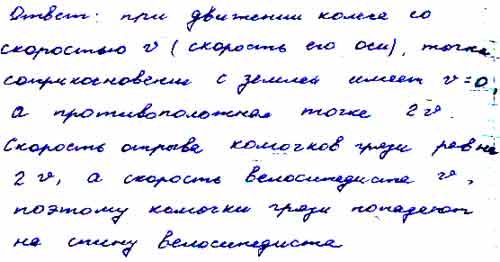 Ответ: при движении колеса со
скоростью v (скорость его оси), точка
соприкосновения с землей имеет v=0,
а противоположная точке 2v.
Скорость отрыва комочков грязи равна
2v, а скорость велосипедиста v,
поэтому комочки грязи попадают
на спину велосипедиста